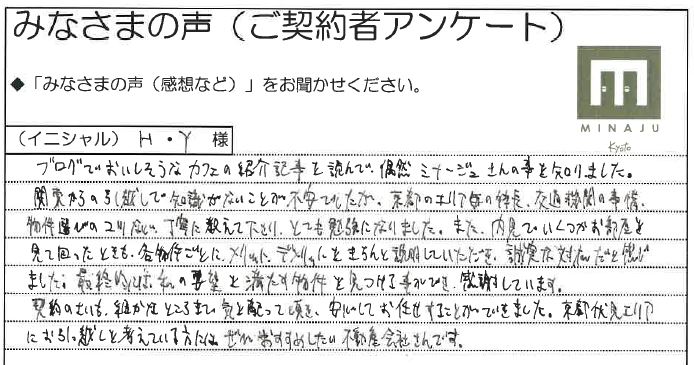 みなさまの声（ご契約者アンケート）
◆「みなさまの声（感想など）」をお聞かせください。
MINAJU
Kyoto
（イニシャル） H・Y 様
ブログでおいしそうなカフェの紹介記事を読んで、偶然ミナージュさんの事を知りました。
関東からの引越しで知識がないことが不安でしたが、京都のエリア毎の特長、交通機関の事情、
物件選びのコツなど、丁寧に教えて下さり、とても勉強になりました。また、内見でいくつかお部屋を
見て回ったときも、各物件ごとに、メリット、デメリットをきちんと説明していただき、誠実な対応だと感じ
ました。最終的には、私の要望を満たす物件を見つける事ができ、感謝しています。
契約のさいも、細かなところまで気を配って頂き、安心してお任せすることができました。京都伏見エリア
にお引っ越しを考えている方には、ぜひおすすめしたい不動産会社さんです。